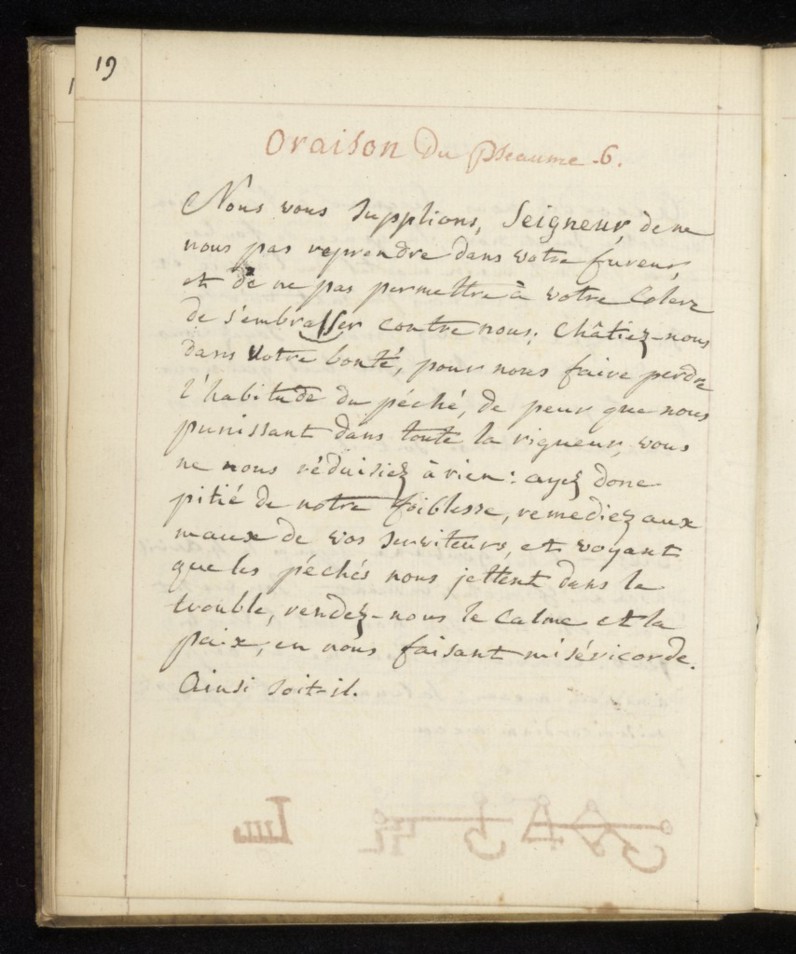 19
Oraison Du Pseaume .6.
Nous vous Supplions, Seigneur, de ne
nous pas reprendre dans votre fureur,
et de ne pas permettre à votre Colere
de s'embrasser contre nous; Châtiez-nous
dans Votre bonté, pour nous faire perdre
l'habitude du péché, de peur que nous
punissant dans toute la rigueur, vous
ne nous réduisiez à rien: ayez donc
pitié de notre foiblesse, remediez aux
maux de vos serviteurs, et voyant
que les péchés nous jettent dans le
trouble, rendez-nous le calme et la
paix, en nous faisant miséricorde.
Ainsi soit-il.